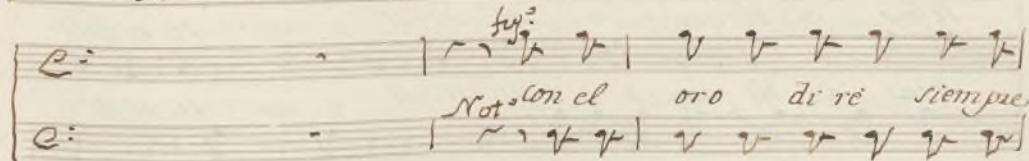 fug.ª
Not.º con el oro di ré siempre